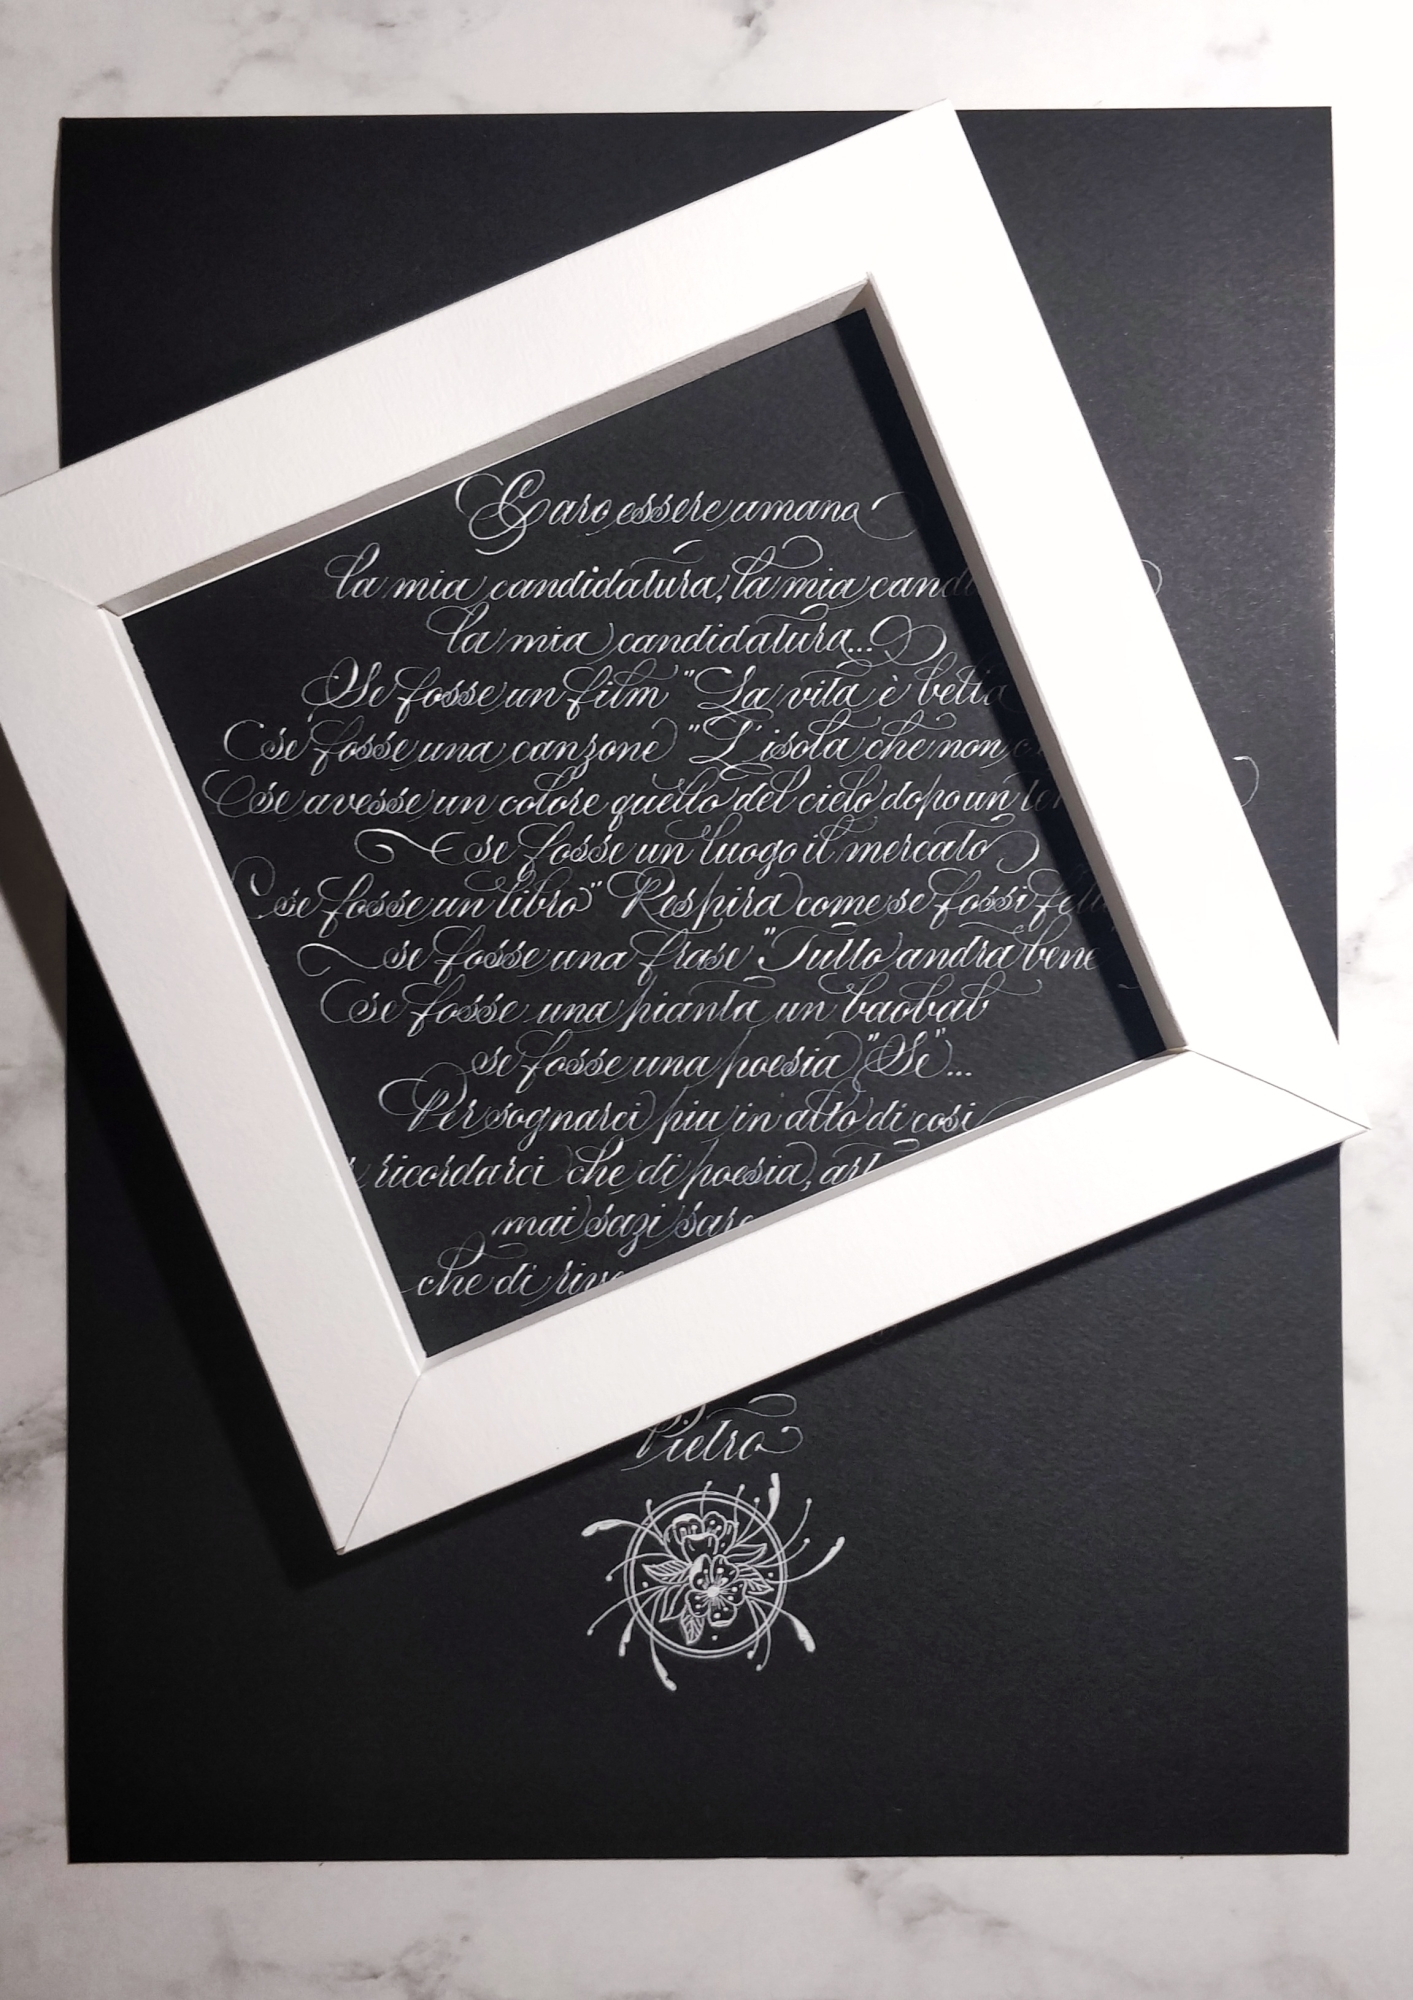 Caro essere umano
la mia candidatura, la mia cand
la mia candidatura...
Se fosse un film "La vita è bella
se fosse una canzone "L'isola che non c
se avesse un colore quello del cielo dopo un te
se fosse un luogo il mercato
se fosse un libro "Respira come se fossi feli
se fosse una frase "Tutto andra bene
se fosse una pianta un baobab
se fosse una poesia "Se"...
Per sognarci piu in alto di cosi
r ricordarci che di poesia, art
mai sazi sare
che di riv
Pietro